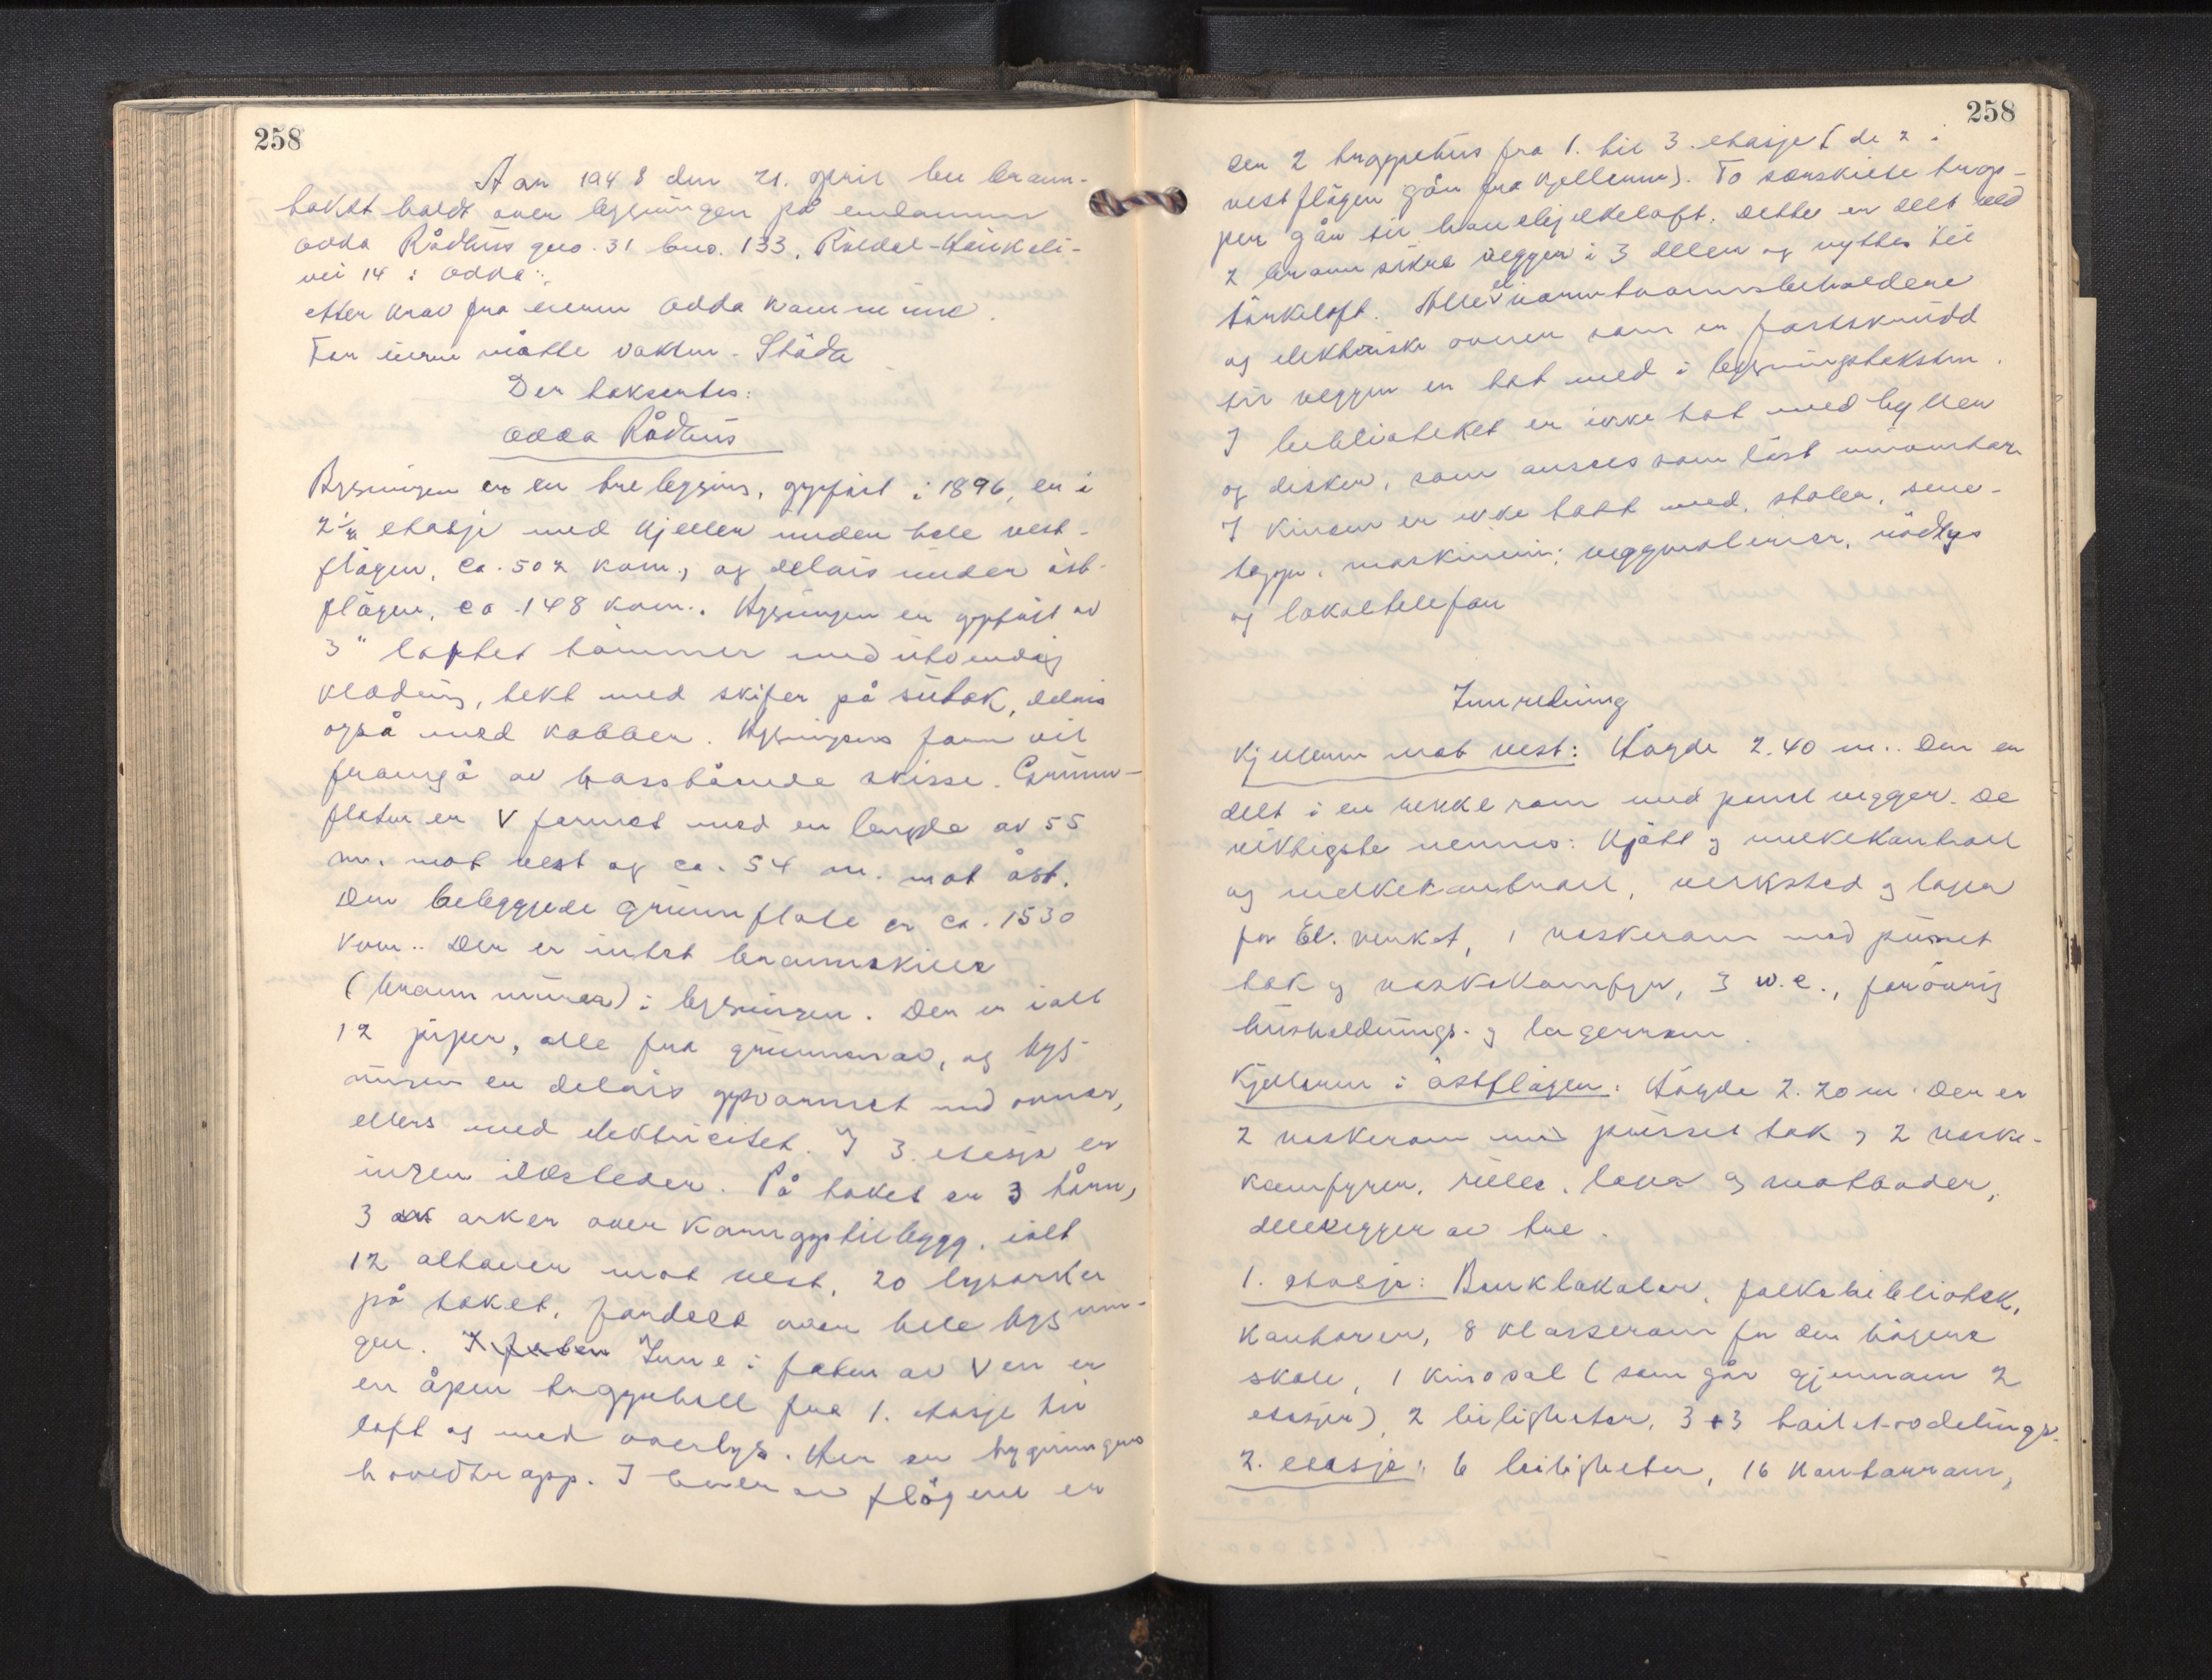 258
Aar 1948 den 21. april ble brann-
takst holdt over bygningen på eiendommen
Odda Rådhus gno. 31 bno. 133, Röldal-Haukeli-
vei 14 i Odda:
etter krav fra eieren Odda kommune.
For eieren mötte vaktm. Stöda
Der taksertes:
Odda Rådhus
Bygningen er en trebygning, oppfört i 1896, er i
2½ etasje med kjeller under hele vest-
flöyen, ca. 502 kvm., og delvis under öst-
flöyen, ca. 148 kvm.. Bygningen er oppfört av
3" laftet tömmer med utvendig
kledning, tekt med skifer på sutak, delvis
også med kobber. Bygningens form vil
framgå av hosstående skisse. Grunn-
flaten er V formet med en lengde av 55
m. mot vest og ca. 54 m. mot öst.
Den bebyggede grunnflate er ca. 1530
kvm.. Der er intet brannskille
(brannmurer) i bygningen. Der er ialt
12 piper, alle fra grunnen av, og byg-
ningen er delvis oppvarmet med ovner,
ellers med elektricitet. I 3. etasje er
ingen ildsteder. På taket er 3 tårn,
3 ark arker over kvm oppbygg, ialt
12 altaner mot vest, 20 lysarker
på taket, fordelt over hele bygnin-
gen. I foten Inne i foten av V en er
en åpen trappehall fra 1. etasje til
loft og med overlys. Her er bygningens
hovedtrapp. I hver av flöyene er
258
der 2 trappehus fra 1. til 3. etasje (de 2 i
vestflöyen går fra kjelleren). To særskilte trap-
per går til hanebjelkeloft. Dette er delt ved
2 brannsikre vegger i 3 deler og nyttes til
törkeloft. Alle el varmtvannsbeholdere
og elektriske ovner som er fastskrudd
til veggen er tat med i bygningstaksten.
I biblioteket er ikke tat med hyller
og disker, som ansees som löst inventar.
I kinoen er ikke tatt med, stoler, sene-
tepp. maskineri; veggmalerier, nödlys
og lokaltelefon
Innredning
Kjelleren mot vest: Höyde 2.40 m.. Den er
delt i en rekke rom med panel vegger. De
viktigste nevnes: Kjött og melkekontroll
og melkekontroll, verksted og lager
for El. verket, 1 vaskerom med pusset
tak og vaskekomfyr, 3 w.c., forövrig
husholdnings- og lagerrom.
Kjelleren i östflöyen: Höyde 2.20 m. Der er
2 vaskerom med pusset tak og 2 vaske-
komfyrer, rulle, lager og matboder,
delevegger av tre.
1. etasje: Banklokaler, folkebibliotek,
Kontorer, 8 klasserom for den höyere
skole, 1 kinosal (som går gjennom 2
etasjer), 2 leiligheter, 3 + 3 toilet-avdelinger.
2. etasje: 6 leiligheter, 16 Kontorrom,